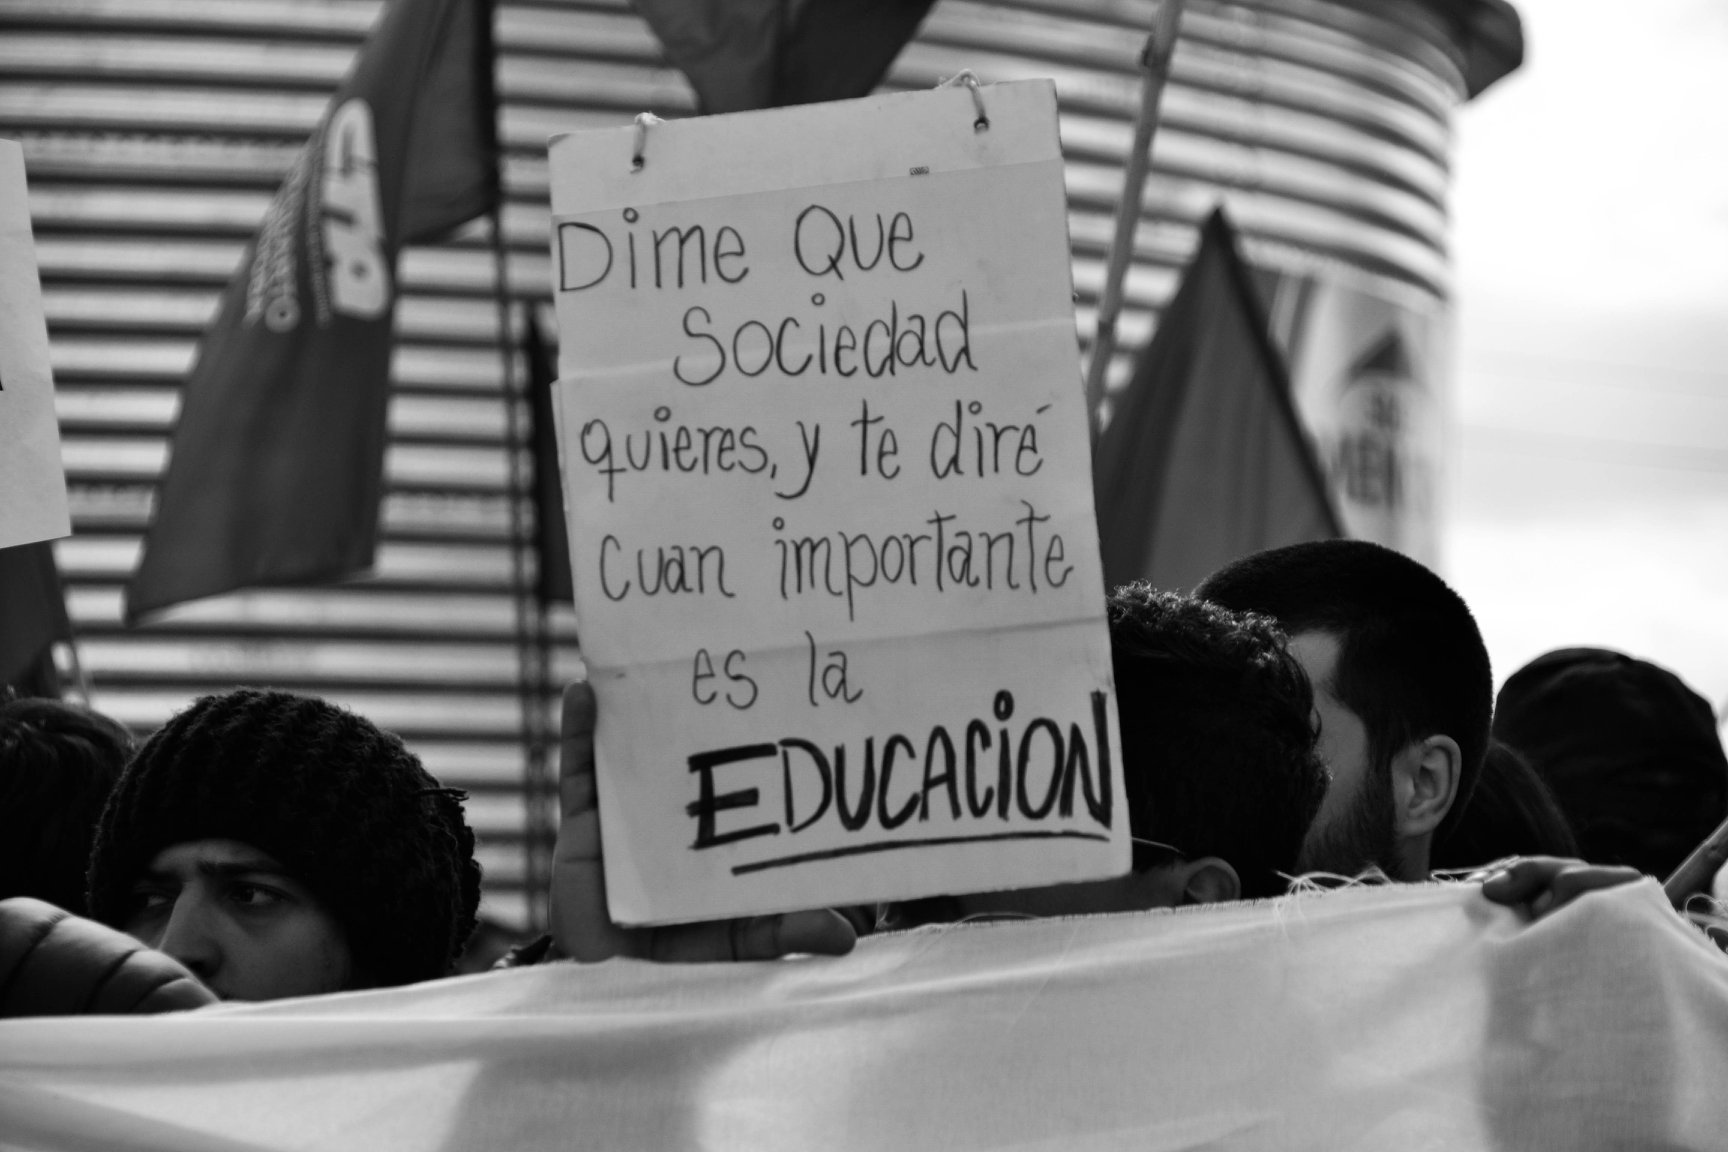 Dime Que
Sociedad
quieres, y te diré
cuan importante
es la
EDUCACiON